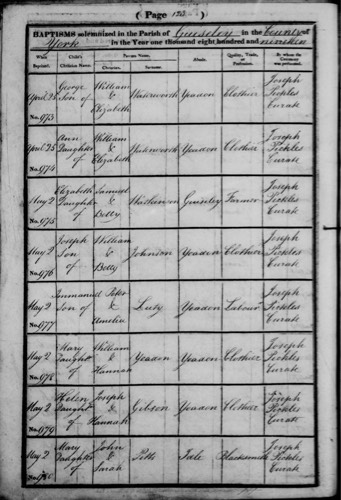 ( Page 123 )
BAPTISMS solemnized in the Parish of Guiseley in the County of
York in the Year one thousand eight hundred and nineteen
When Baptized. Child's Christian Name. Parents Name. Christian. Surname. Abode. Quality, Trade, or Profession. By whom the Ceremony was performed.
April 25 George William Clothier Joseph
Son of & Yeadon Pickles
No. 973 Elizabeth Curate
April 25 Ann William Clothier Joseph
Daughter & Yeadon Pickles
No. 974 of Elizabeth Curate
May 2 Elizabeth Samuel Farmer Joseph
Daughter & Guiseley Pickles
No. 975 of Betty Curate
May 2 Joseph William Johnson Yeadon Clothier Joseph
Son & Pickles
No. 976 of Betty Curate
May 2 Immanuel Peter Joseph
Son of & Luty Yeadon Labour Pickles
No. 977 Amelia Curate
May 2 Mary William Joseph
Daught & Yeadon Yeadon Clothier Pickles
No. 978 of Hannah Curate
May 2 Helen Joseph Joseph
Daught & Gibson Yeadon Clothier Pickles
No. 979 of Hannah Curate
May 2 Mary John Joseph
Daughter & Pitts Idle Blacksmith Pickles
No. 980. of Sarah Curate